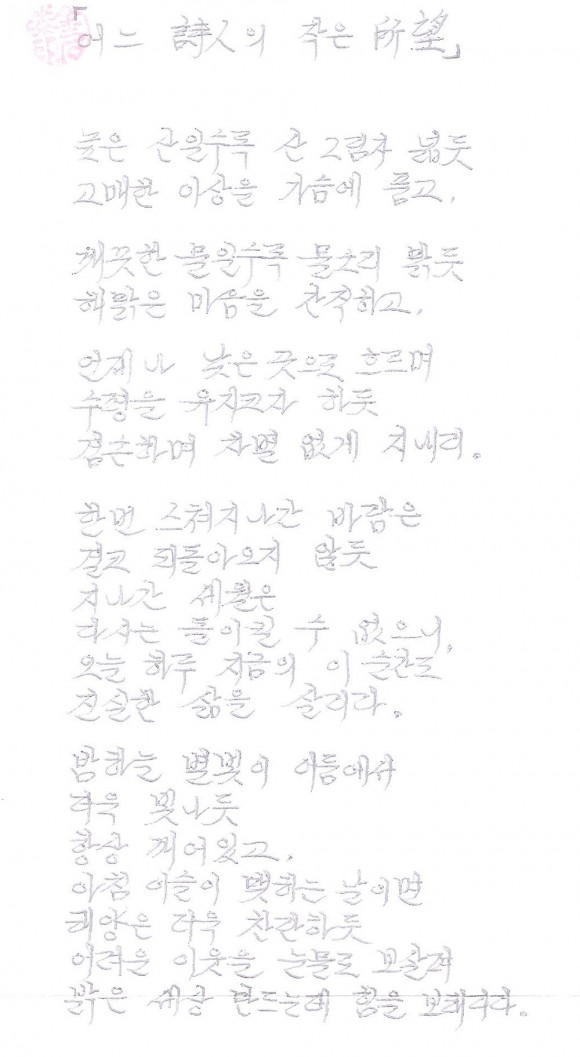 「어느 詩人의 작은 所望」
높은 산일수록 산 그림자 넓듯
고매한 이상을 가슴에 품고,
깨끗한 물일수록 물소리 밝듯
해맑은 마음을 간직하고,
언제나 낮은 곳으로 흐르며
수평을 유지코자 하듯
겸손하며 차별 없게 지내리。
한번 스쳐지나간 바람은
결코 되돌아오지 않듯
지나간 세월은
다시는 돌이킬 수 없으니,
오늘 하루 지금의 이 순간도
진실한 삶을 살리라。
밤하늘 별빛이 어둠에서
더욱 빛나듯
항상 깨어있고,
아침 이슬이 맺히는 날이면
태양은 더욱 찬란하듯
어려운 이웃을 눈물로 보살펴
밝은 세상 만드는데 힘을 보태리라。